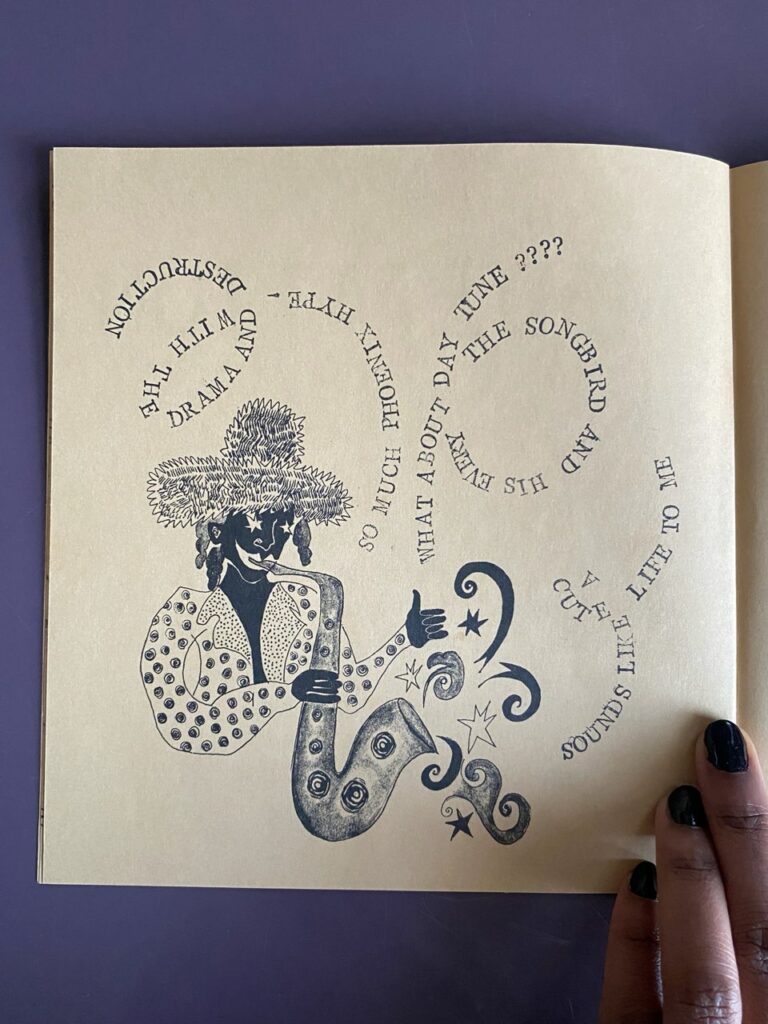 SO MUCH PHOENIX HYPE -
WITH THE
DRAMA AND
DESTRUCTION
WHAT ABOUT
THE SONGBIRD AND HIS EVERY
DAY TUNE ????
SOUNDS LIKE
A CUTE
LIFE TO ME